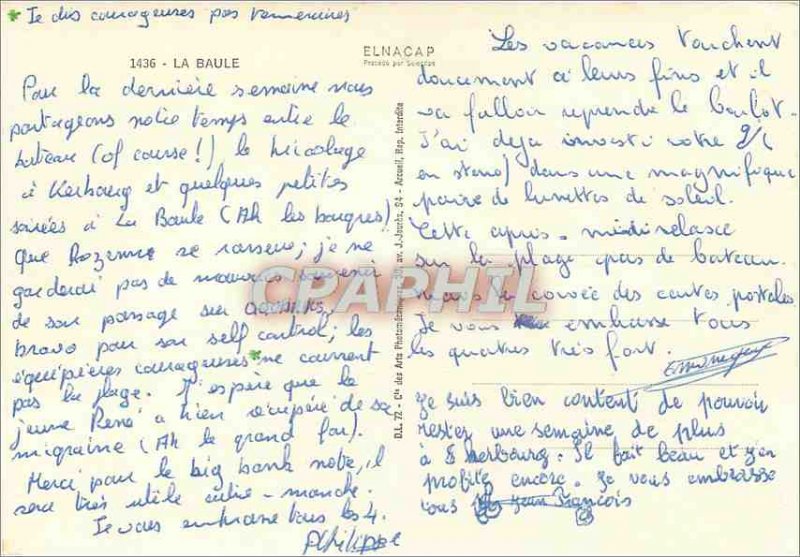 * Je dis courageuses pas temeraires
1436 - LA BAULE
ELNACAP
Procédé par Selectas
Pour la dernière semaine nous
partageons notre temps entre le
bateau (of course!) le bricolage
à Kerbourg et quelques petites
soirées à La Baule (Ah les bougres)
que Rozenne se rassure; je ne
garderai pas de mauvais souvenir
de son passage sur
bravo pour son self control; les
équipières courageuses* ne courrent
pas la plage. J'espère que le
jeune René a bien récupéré de sa
migraine (Ah le grand fou).
Merci pour le big bank note, il
sera très utile outre-manche.
Je vous embrasse tous les 4.
Philippe
D.L. 72 - Cie des Arts Photomécaniques, 30, av. J.-Jaurès, 94 - Arcueil, Rep. Interdite
CPAPHIL
Les vacances touchent
doucement à leurs fins et il
va falloir reprendre le boulot.
J'ai deja investi votre
en stand) dans une magnifique
paire de lunettes de soleil.
Cette après-midi relaxe
sur la plage pas de bateau.
mais la corvée des cartes postales
Je vous embrasse tous
les quatres très fort.
Je suis bien content de pouvoir
rester une semaine de plus
à herbourg. Il fait beau et j'en
profite encore. Je vous embrasse
tous Jean François